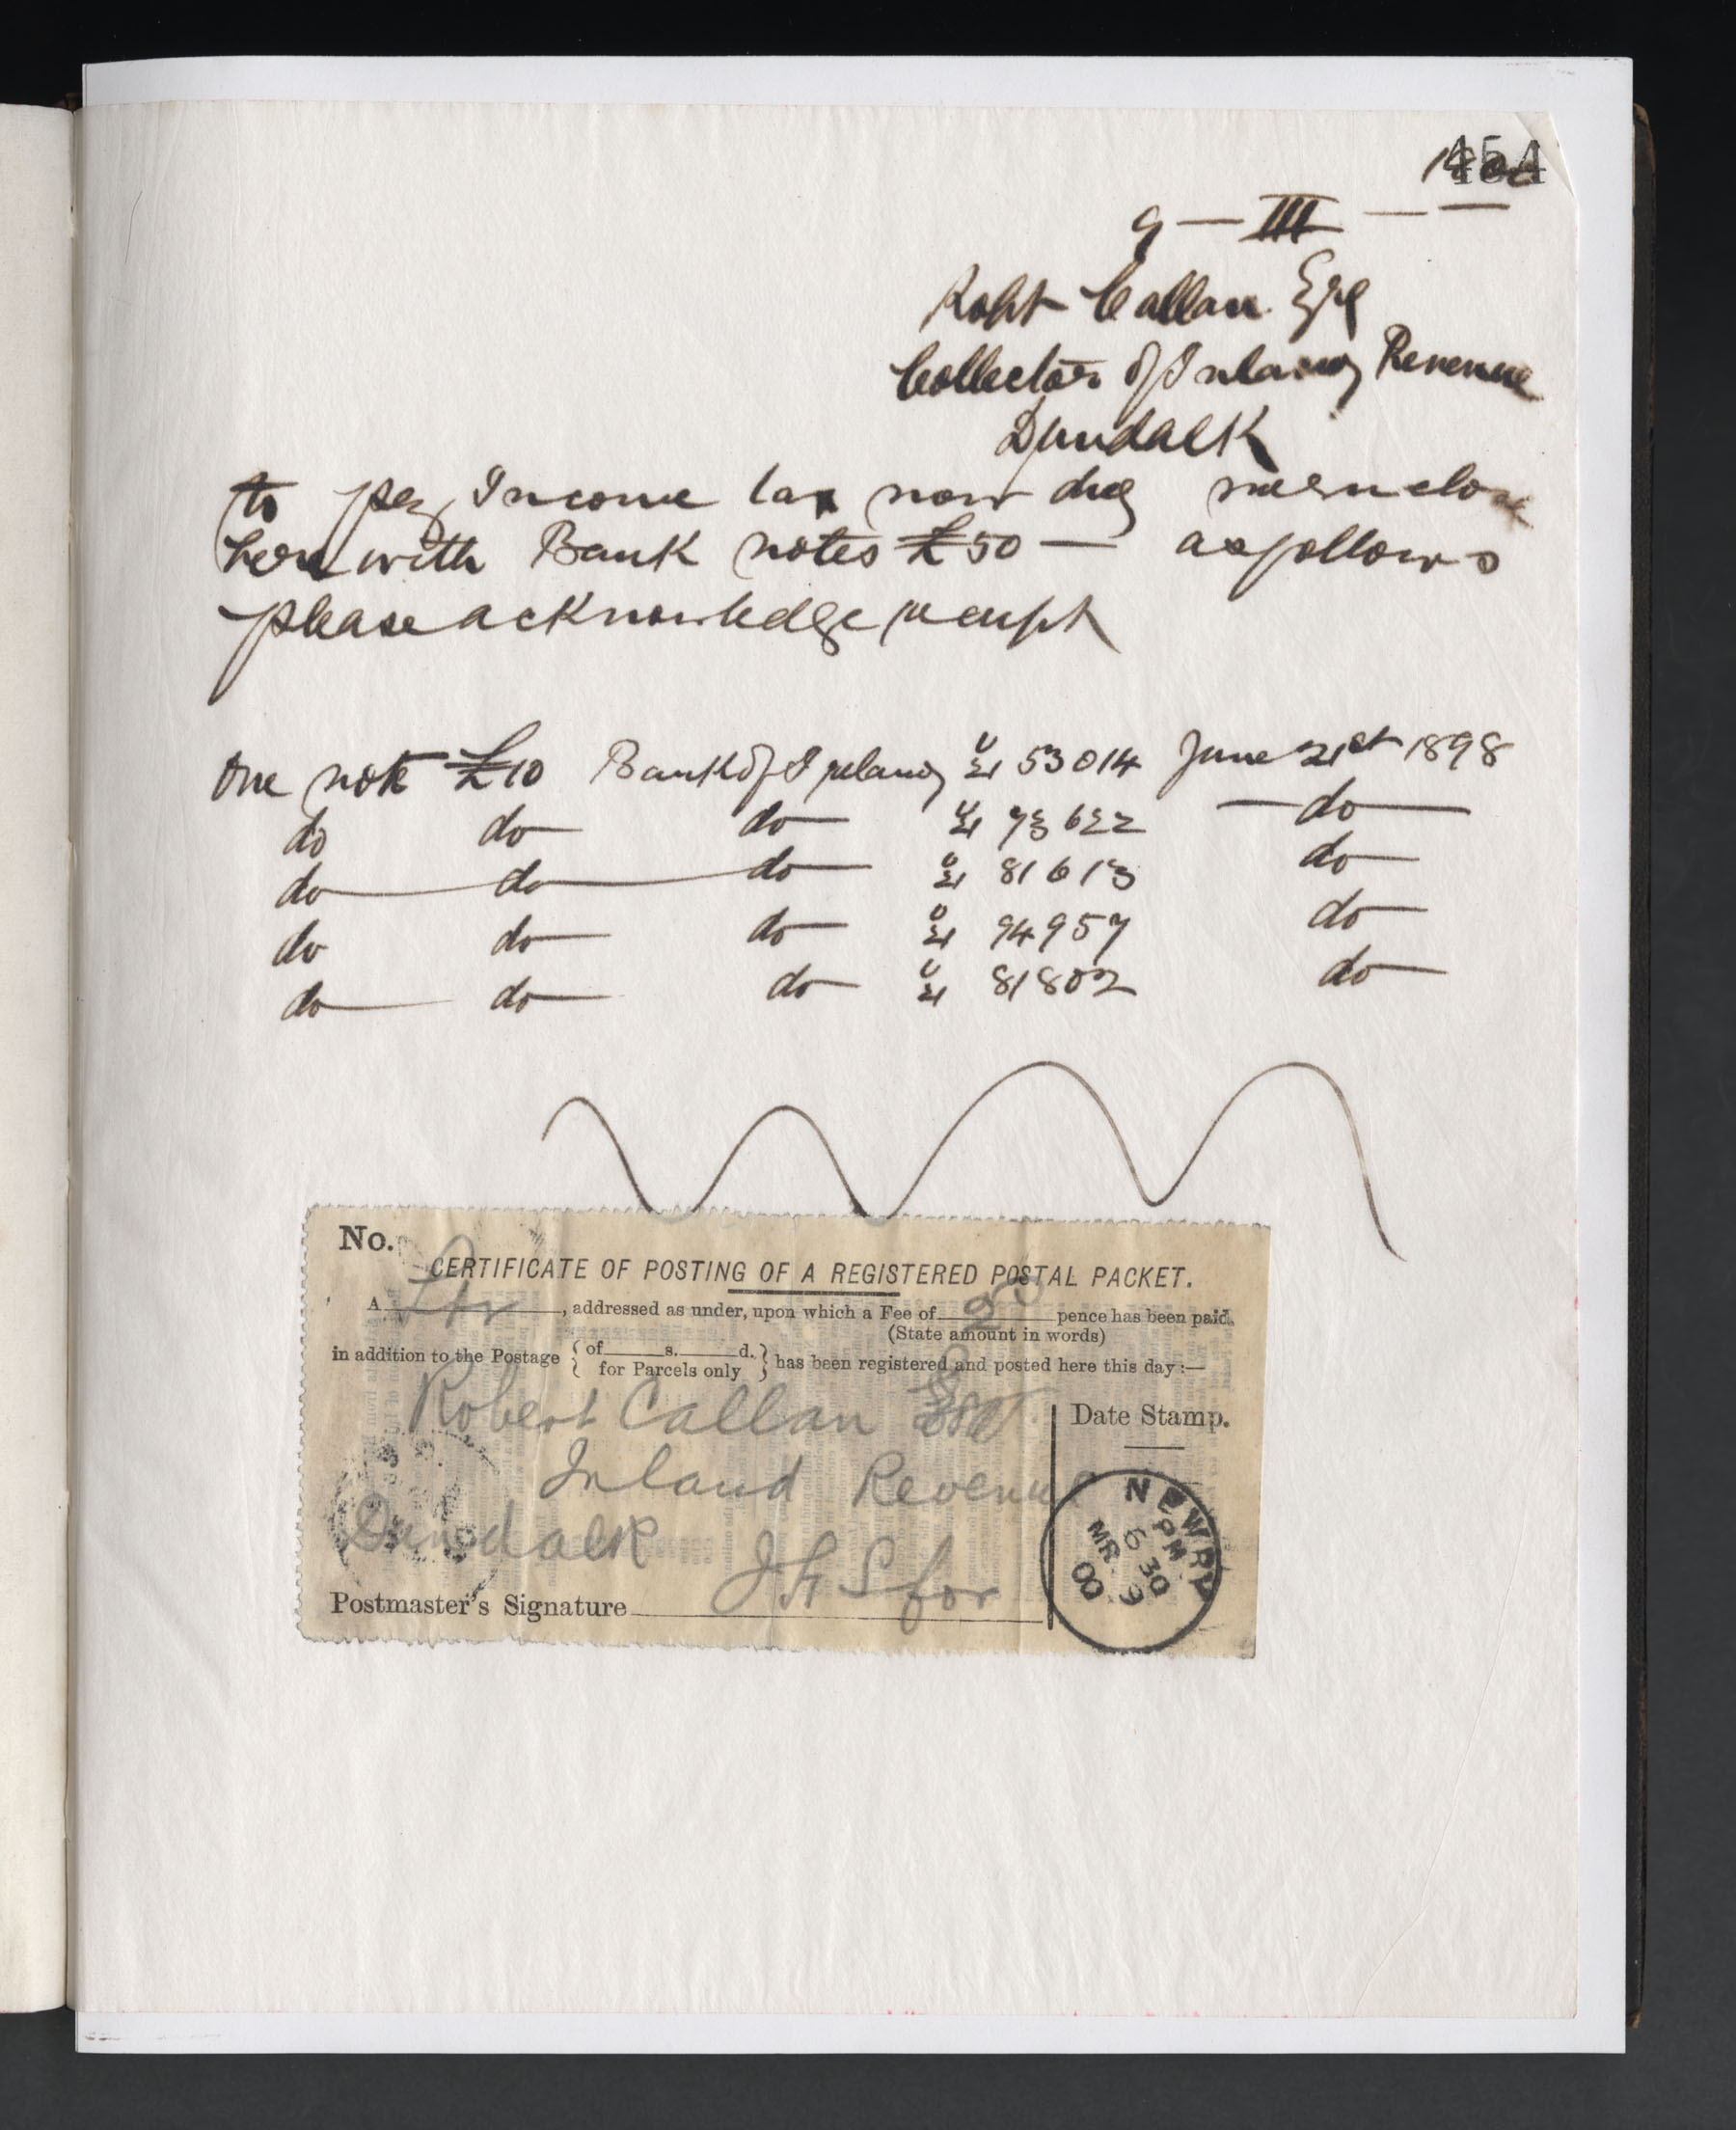 454
9 — III — —
Robt Callan Esq
Collector of Inland Revenue
Dundalk
to pay Income tax now due we enclose
herewith Bank notes £50 — as follows
please acknowledge receipt
One note £10 Bank of Ireland 53014 June 21st 1898
do do do 73622 do
do do do 81613 do
do do do 94957 do
do do do 81802 do
No.
CERTIFICATE OF POSTING OF A REGISTERED POSTAL PACKET.
A Ltr, addressed as under, upon which a Fee of 2D pence has been paid
(State amount in words)
in addition to the Postage { of s. d. } has been registered and posted here this day :—
for Parcels only
Robert Callan Esq
Date Stamp.
Inland Revenue
Dundalk
NEWRY
6 30 PM
MR 9
00
Postmaster's Signature